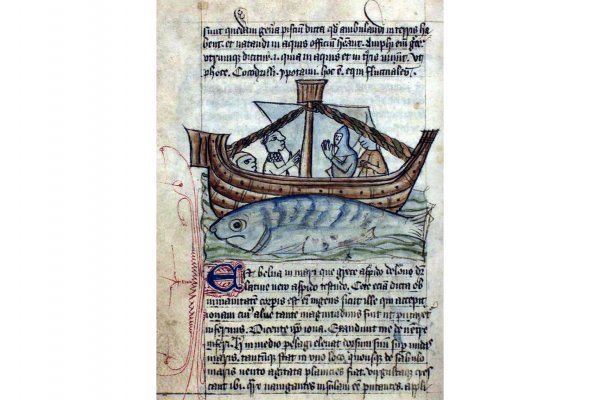 sunt quedam gen̄a pisciū dicta qd̄ ambulandi in terris ha
bent. et natandi in aquis officiū hēant. Amphi em̄
utrumque dicitur .i. quia in aquis et in t̄ris uiuūt. ut
phoce. Cocodrilli. ypotami. hoc ē equi fluctuales.
Est belua in mari que grece aspido delone dr̄
latine uero aspido testudo. Cete eciā dicta ob
inmanitatem corpis est em̄ ingens sicut ille qui accepit
ionam cui' alu' tante magnitudinis fuit ut putaret
infernus. Dicente ip̄o iona. Exaudiuit me de uentre
inferi. in medio pelagi eleuat dorsum suum sup undas
maris. tantūque stat in uno loco. quousque de sabulo
maris uento agitata planicies fiat. virgultaque cres
cant ibi. nauigantes insulam eē putantes. appli